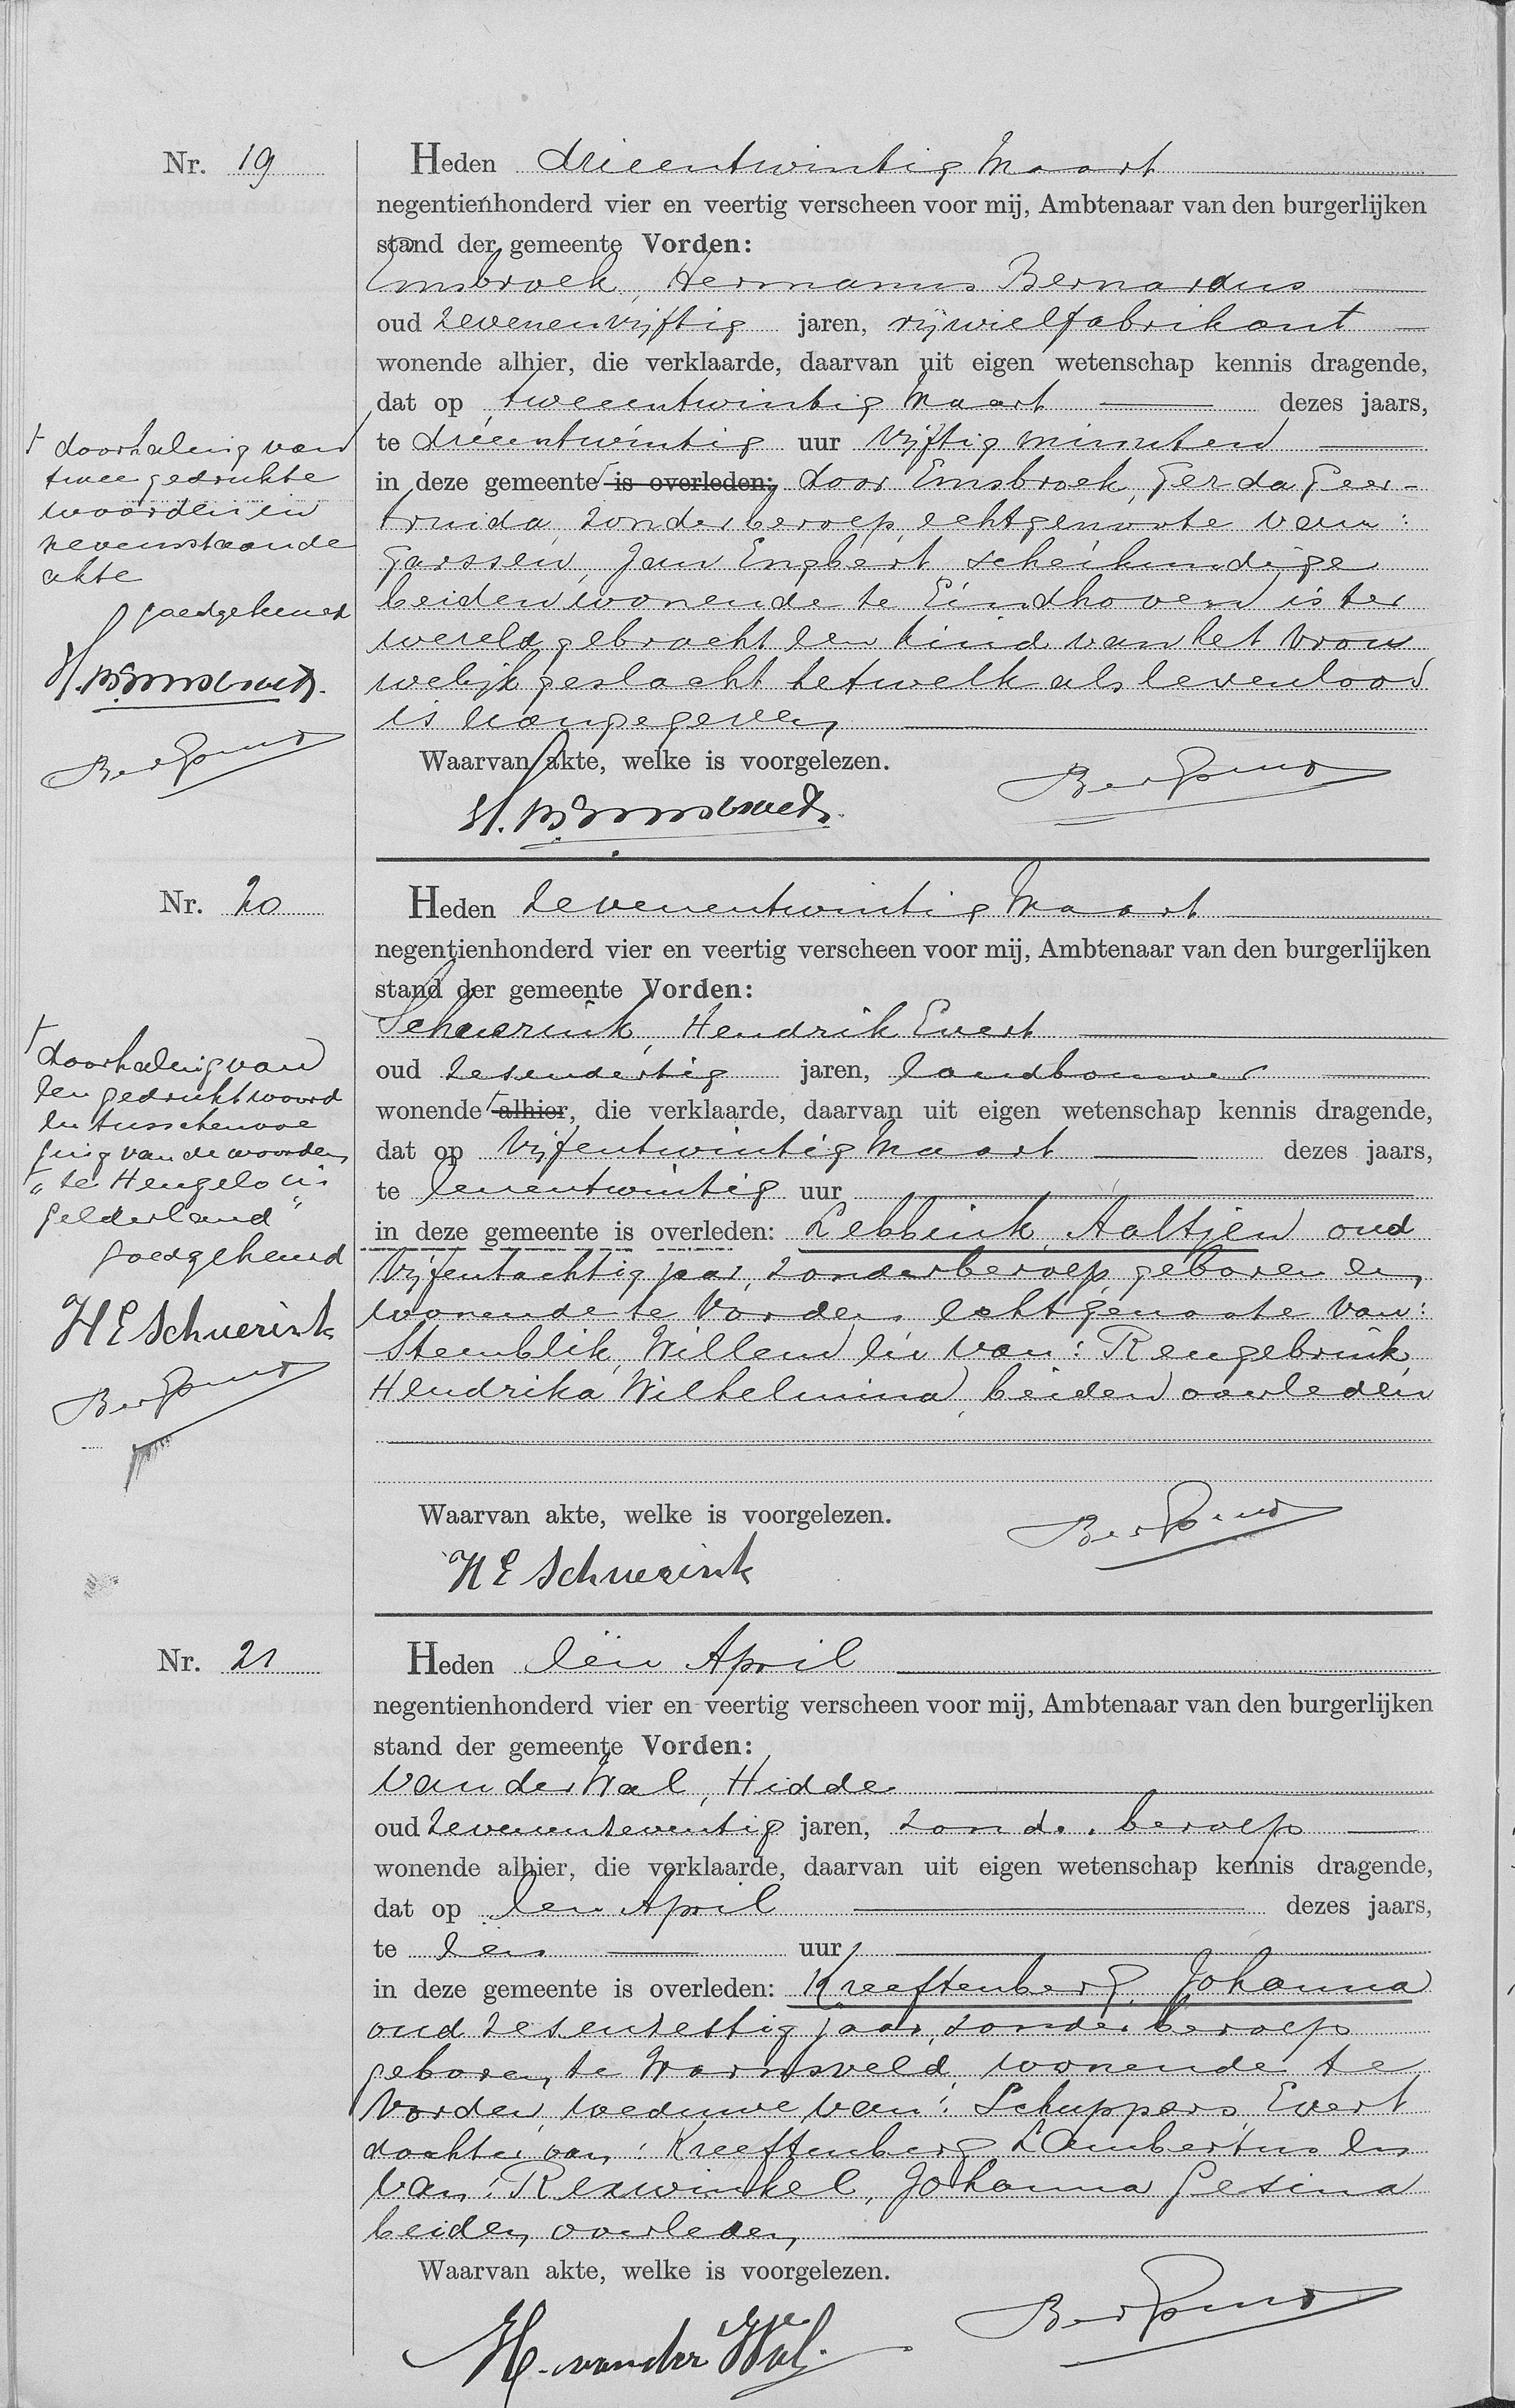 Nr. 19
Heden drieentwintig Maart
negentienhonderd vier en veertig verscheen voor mij, Ambtenaar van den burgerlijken
stand der gemeente Vorden:
Emsbroek, Hermanus Bernardus
oud zevenenvijftig jaren, rijwielfabrikant
wonende alhier, die verklaarde, daarvan uit eigen wetenschap kennis dragende,
dat op tweeentwintig Maart dezes jaars,
te drieentwintig uur vijftig minuten
in deze gemeente is overleden: door Emsbroek, Gerda Geer-
truida, zonder beroep, echtgenoote van:
Garssen, Jan Engbert scheikundige
beiden wonende te Eindhoven is ter
wereld gebracht een kind van het vrou
welijk geslacht hetwelk als levenloos
is aangegeven
Waarvan akte, welke is voorgelezen.
H. B. Emsbroek.
† doorhaling van
twee gedrukte
woorden in
nevenstaande
akte
goedgekeurd
H. B. Emsbroek.
Nr. 20
Heden zevenentwintig Maart
negentienhonderd vier en veertig verscheen voor mij, Ambtenaar van den burgerlijken
stand der gemeente Vorden:
Schuerink, Hendrik Evert
oud zesendertig jaren, landbouwer
wonende † alhier, die verklaarde, daarvan uit eigen wetenschap kennis dragende,
dat op vijfentwintig Maart dezes jaars,
te eenentwintig uur
in deze gemeente is overleden: Lebbink, Aaltjen oud
vijfentachtig jaar, zonder beroep, geboren en
wonende te Vorden echtgenoote van:
Steenblik, Willem en van: Rengebrink
Hendrika Wilhelmina, beiden overleden
Waarvan akte, welke is voorgelezen.
H E Schuerink
† doorhaling van
een gedrukt woord
en tusschenvoe
ging van de woorden
"te Hengelo in
Gelderland"
goedgekeurd
H E Schuerink
Nr. 21
Heden één April
negentienhonderd vier en veertig verscheen voor mij, Ambtenaar van den burgerlijken
stand der gemeente Vorden:
van der Wal, Hidde
oud zevenenzeventig jaren, zonder beroep
wonende alhier, die verklaarde, daarvan uit eigen wetenschap kennis dragende,
dat op een April dezes jaars,
te een uur
in deze gemeente is overleden: Kreeftenberg, Johanna
oud zesenzestig jaar, zonder beroep
geboren te Warnsveld, wonende te
Vorden, weduwe van: Schuppers, Evert
dochter van: Kreeftenberg Lambertus en
van: Rexwinkel, Johanna Gesina
beiden overleden
Waarvan akte, welke is voorgelezen.
H. van der Wal.